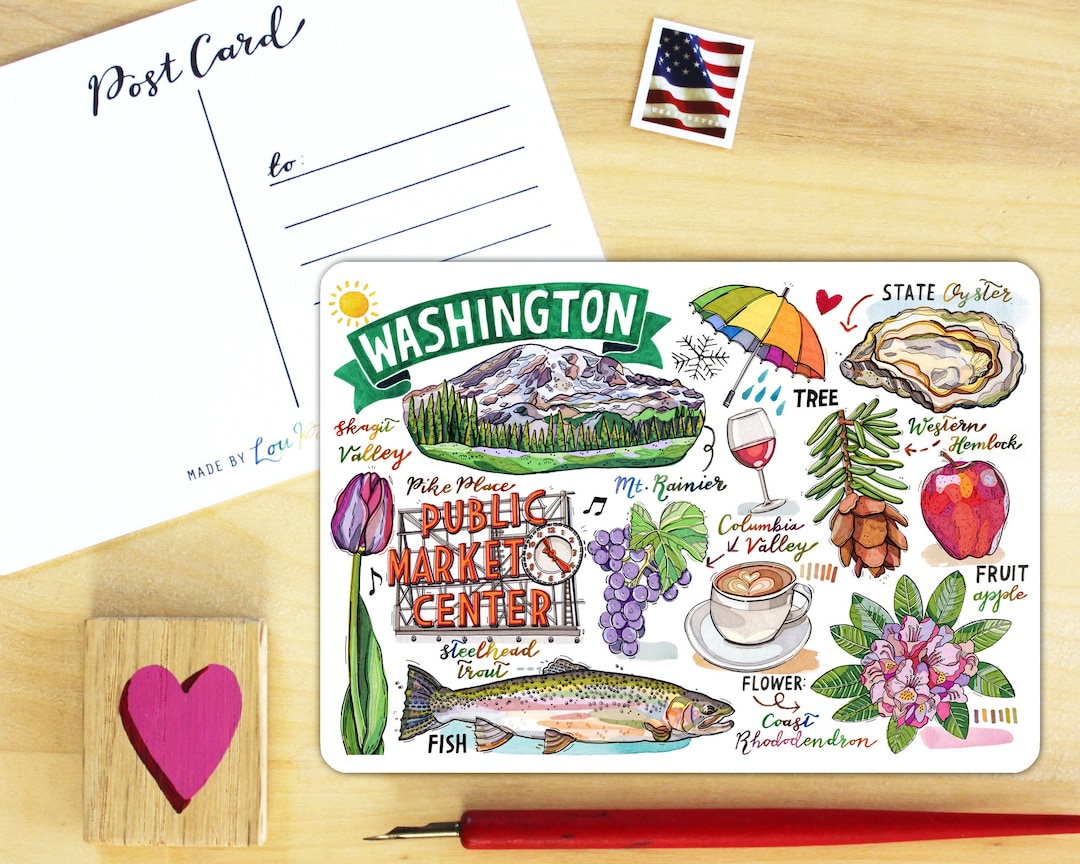 Post Card
to:
MADE BY Lou
WASHINGTON
STATE Oyster
TREE
Western
Hemlock
Skagit
Valley
Mt. Rainier
Pike Place
PUBLIC
MARKET
CENTER
Columbia
Valley
FRUIT
apple
Steelhead
Trout
FISH
FLOWER:
Coast
Rhododendron